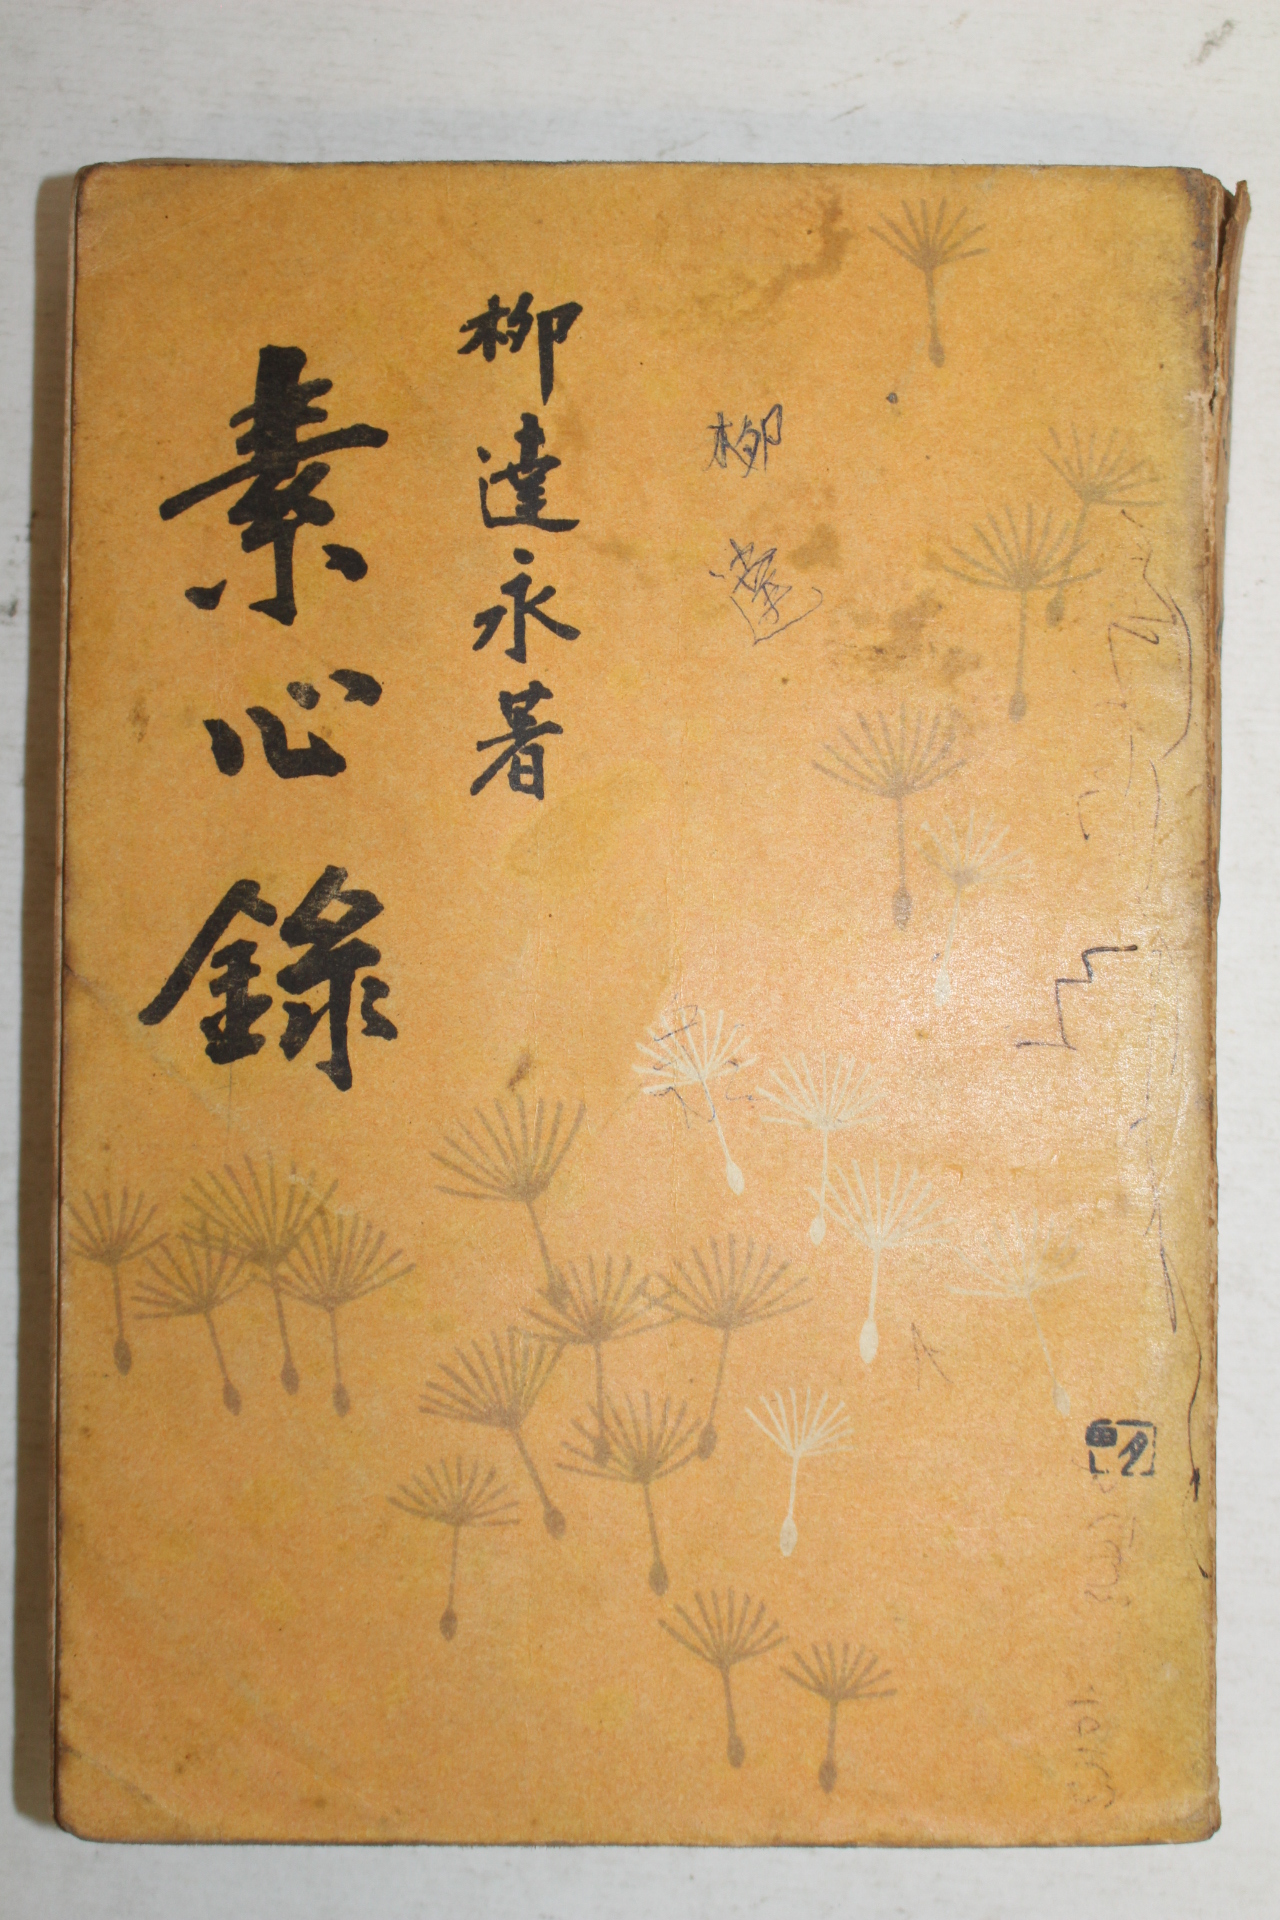 柳達永著
素心錄
柳達